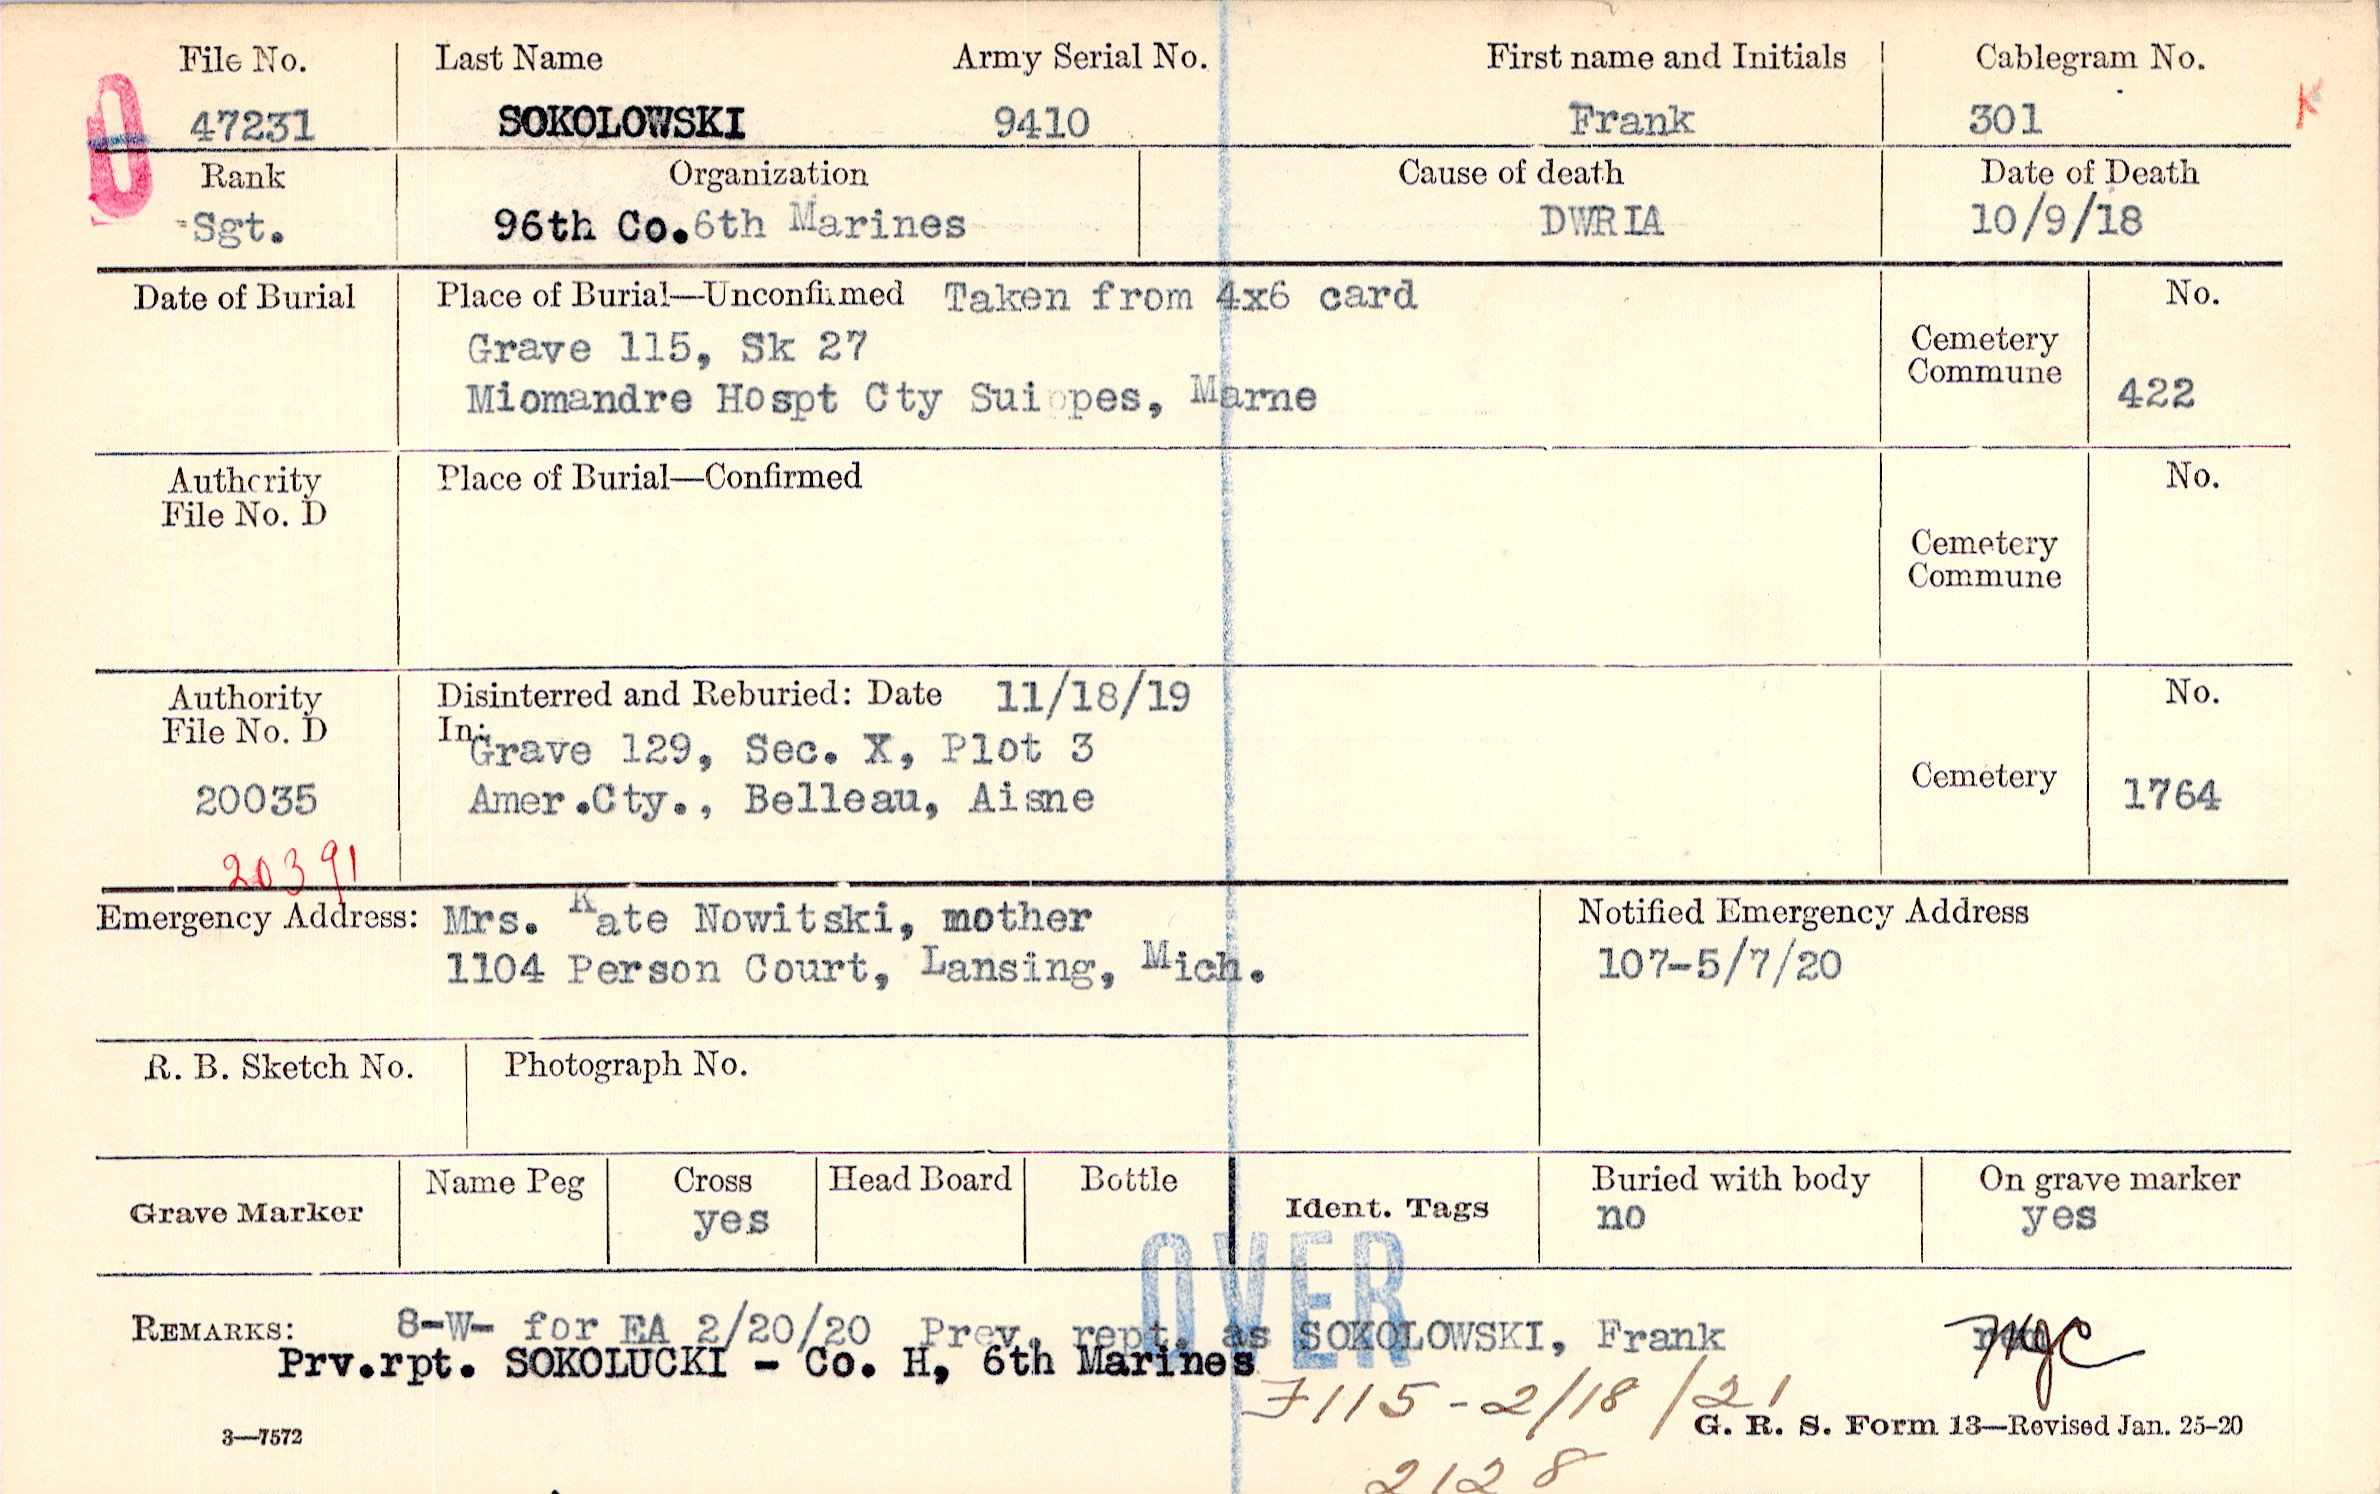 File No. Last Name Army Serial No. First name and Initials Cablegram No.
47231 SOKOLOWSKI 9410 Frank 301 K
Rank Organization Cause of death Date of Death
Sgt. 96th Co. 6th Marines DWRIA 10/9/18
Date of Burial Place of Burial—Unconfirmed Taken from 4x6 card No.
Grave 115, Sk 27 Cemetery
Commune
Miomandre Hospt Cty Suippes, Marne 422
Authority Place of Burial—Confirmed No.
File No. D
Cemetery
Commune
Authority Disinterred and Reburied: Date 11/18/19 No.
File No. D In:
Grave 129, Sec. X, Plot 3
20035 Amer.Cty., Belleau, Aisne Cemetery 1764
20391
Emergency Address: Mrs. Kate Nowitski, mother Notified Emergency Address
1104 Person Court, Lansing, Mich. 107-5/7/20
R. B. Sketch No. Photograph No.
Grave Marker Name Peg Cross Head Board Bottle Ident. Tags Buried with body On grave marker
yes no yes
OVER
REMARKS: 8-W- for EA 2/20/20 Prev. rept. as SOKOLOWSKI, Frank
Prv.rpt. SOKOLUCKI - Co. H, 6th Marines
F115-2/18/21
3—7572 G. R. S. Form 13—Revised Jan. 25-20
2128